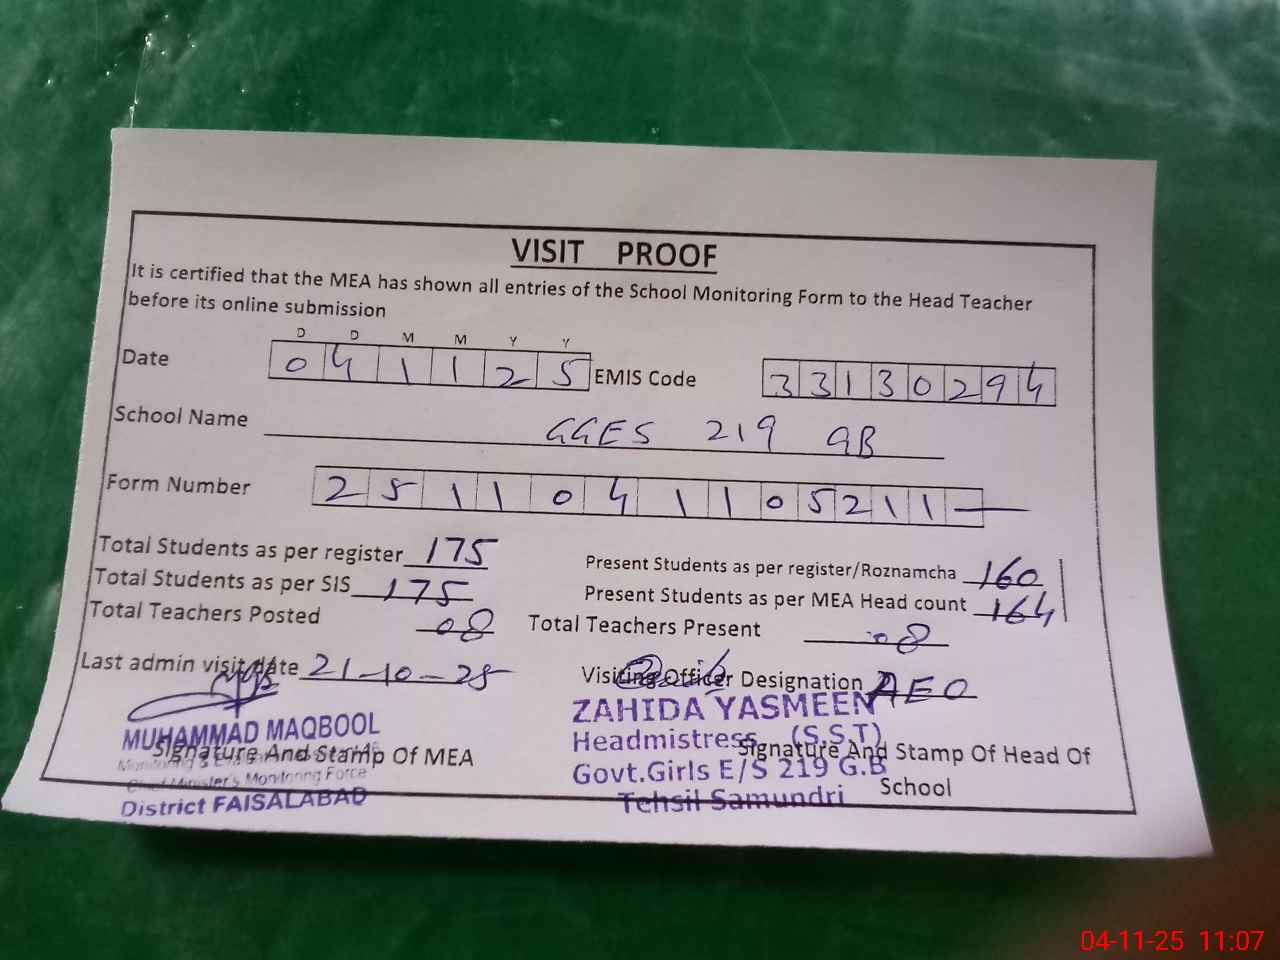 VISIT PROOF
It is certified that the MEA has shown all entries of the School Monitoring Form to the Head Teacher
before its online submission
D D M M Y Y
Date 0 4 1 1 2 5 EMIS Code 3 3 1 3 0 2 9 4
School Name GGES 219 GB
Form Number 2 5 1 1 0 4 1 1 0 5 2 1 1 —
Total Students as per register 175 Present Students as per register/Roznamcha 160
Total Students as per SIS 175 Present Students as per MEA Head count 164
Total Teachers Posted 08 Total Teachers Present 08
Last admin visit date 21-10-25 Visiting Officer Designation AEO
MUHAMMAD MAQBOOL
Monitoring & Evaluation
Chief Minister's Monitoring Force
District FAISALABAD
Signature And Stamp Of MEA
ZAHIDA YASMEEN
Headmistress (S.S.T)
Govt.Girls E/S 219 G.B
Tehsil Samundri
Signature And Stamp Of Head Of
School
04-11-25 11:07